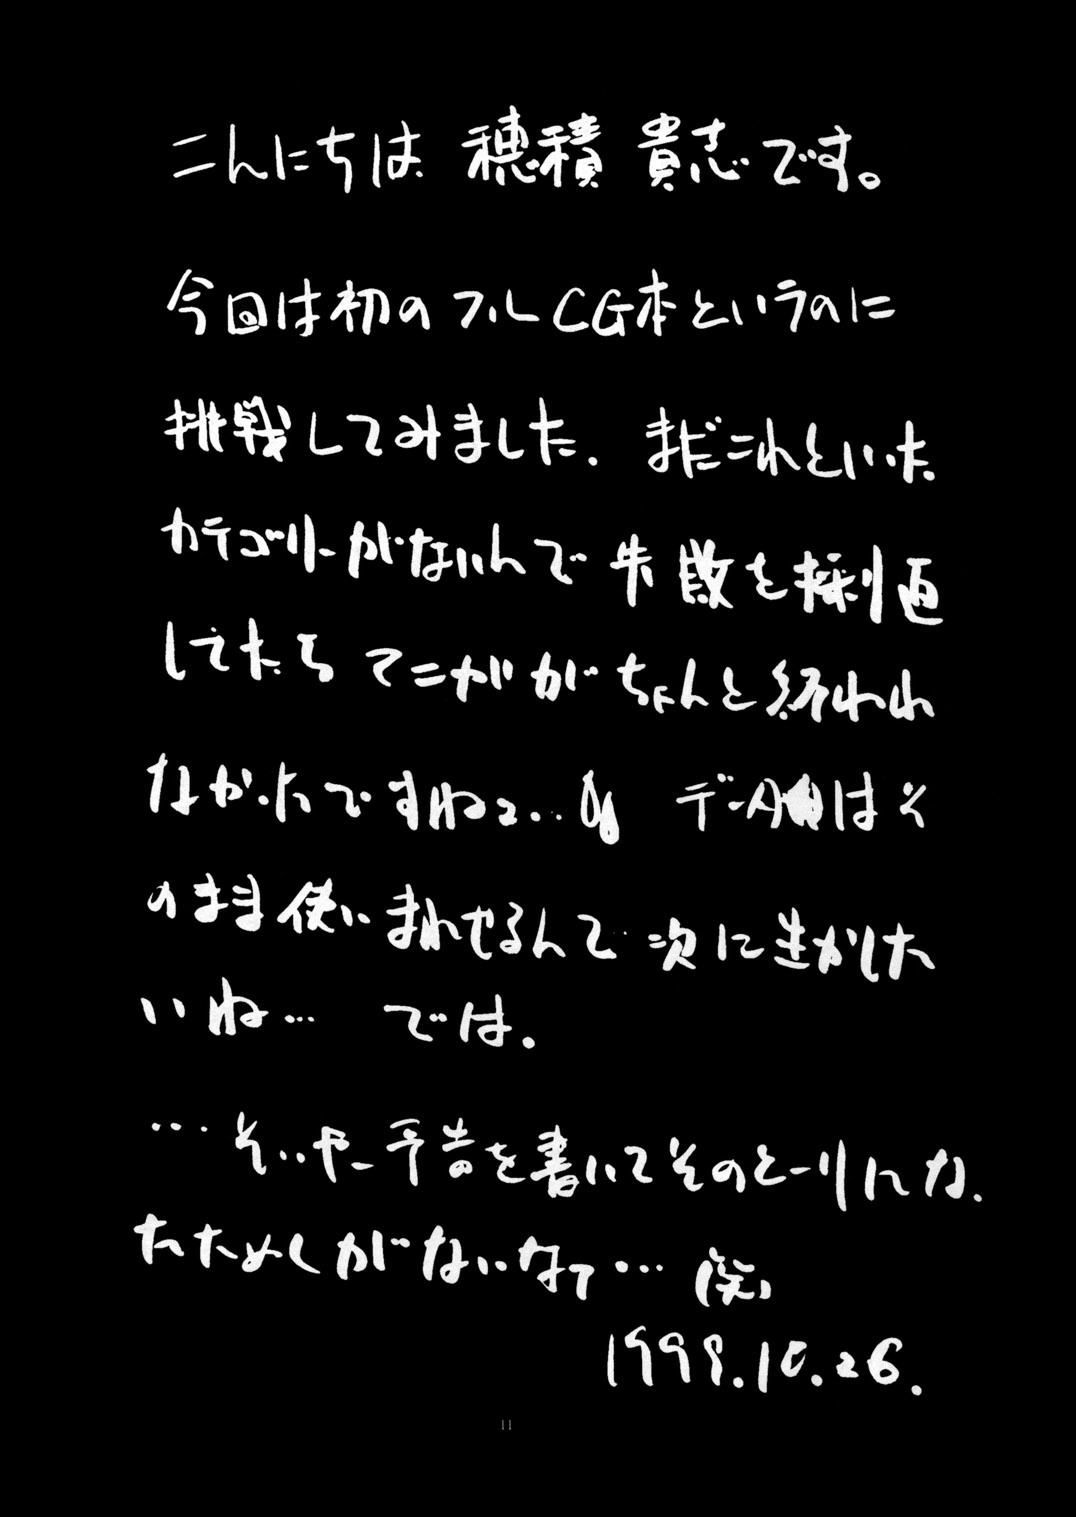 こんにちは 穂積 貴志です。
今回は初のフルCG本というのに
挑戦してみました. まだこれといった
カテゴリーがないんで 失敗を繰り返
してたら てこがが ちゃんと終われ
なかったですねェ… データは そ
のまま使いまわせるんで 次に生かした
いね… では.
…そいやー予告を書いてそのとーりにな.
たためしがないなァ… (笑)
1998.10.26.
11